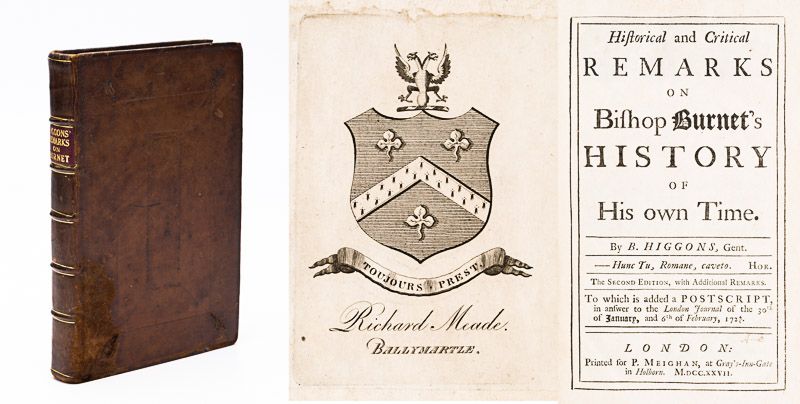 HIGGONS'
REMARKS
ON
BURNET
TOUJOURS PREST.
Richard Meade.
BALLYMARTLE.
Hiſtorical and Critical
REMARKS
ON
Biſhop Burnet's
HISTORY
OF
His own Time.
By B. HIGGONS, Gent.
—— Hunc Tu, Romane, caveto. HOR.
The SECOND EDITION, with Additional REMARKS.
To which is added a POSTSCRIPT,
in anſwer to the London Journal of the 30th
of January, and 6th of February,
LONDON:
Printed for P. MEIGHAN, at Gray's-Inn-Gate
in Holborn. M.DCC.XXVII.